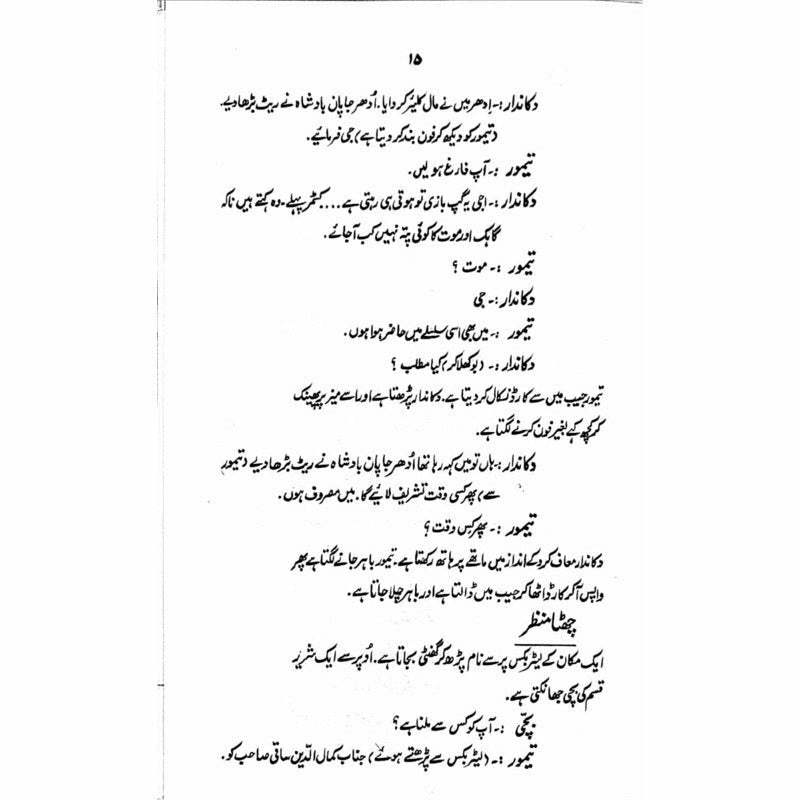 ۱۵
دکاندار :۔ اِدھر میں نے مال کلیئر کروایا۔ اُدھر جاپان بادشاہ نے ریٹ بڑھا دیے۔
(تیمور کو دیکھ کر فون بند کر دیتا ہے) جی فرمائیے۔
تیمور :۔ آپ فارغ ہو لیں۔
دکاندار :۔ اجی یہ گپ بازی تو ہوتی ہی رہتی ہے.... کسٹمر پہلے۔ وہ کہتے ہیں ناکہ
گاہک اور موت کا کوئی پتہ نہیں کب آجائے۔
تیمور :۔ موت ؟
دکاندار :۔ جی
تیمور :۔ میں بھی اسی سلسلے میں حاضر ہوا ہوں۔
دکاندار :۔ (بوکھلا کر) کیا مطلب ؟
تیمور جیب میں سے کارڈ نکال کر دیتا ہے۔ دکاندار پڑھتا ہے اور اسے میز پر پھینک
کر کچھ کہے بغیر فون کرنے لگتا ہے۔
دکاندار :۔ ہاں تو میں کہہ رہا تھا اُدھر جاپان بادشاہ نے ریٹ بڑھا دیے (تیمور
سے) پھر کسی وقت تشریف لائیے گا۔ میں مصروف ہوں۔
تیمور :۔ پھر کس وقت ؟
دکاندار معاف کرو کے انداز میں ماتھے پر ہاتھ رکھتا ہے۔ تیمور باہر جانے لگتا ہے پھر
واپس آ کر کارڈ اٹھا کر جیب میں ڈالتا ہے اور باہر چلا جاتا ہے۔
چھٹا منظر
ایک مکان کے لیٹر بکس پر سے نام پڑھ کر گھنٹی بجاتا ہے۔ اُوپر سے ایک شریر
قسم کی بچی جھانکتی ہے۔
بچّی :۔ آپ کو کس سے ملنا ہے ؟
تیمور :۔ (لیٹر بکس سے پڑھتے ہوئے) جناب کمال الدّین ساقی صاحب کو۔